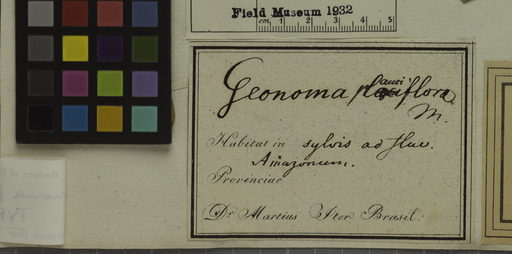 Field Museum 1932
cm 1 2 3 4 5
Geonoma pauciflora
M.
Habitat in sylvis ad fluv.
Amazonum.
Provinciae
Dr Martius Iter Brasil.